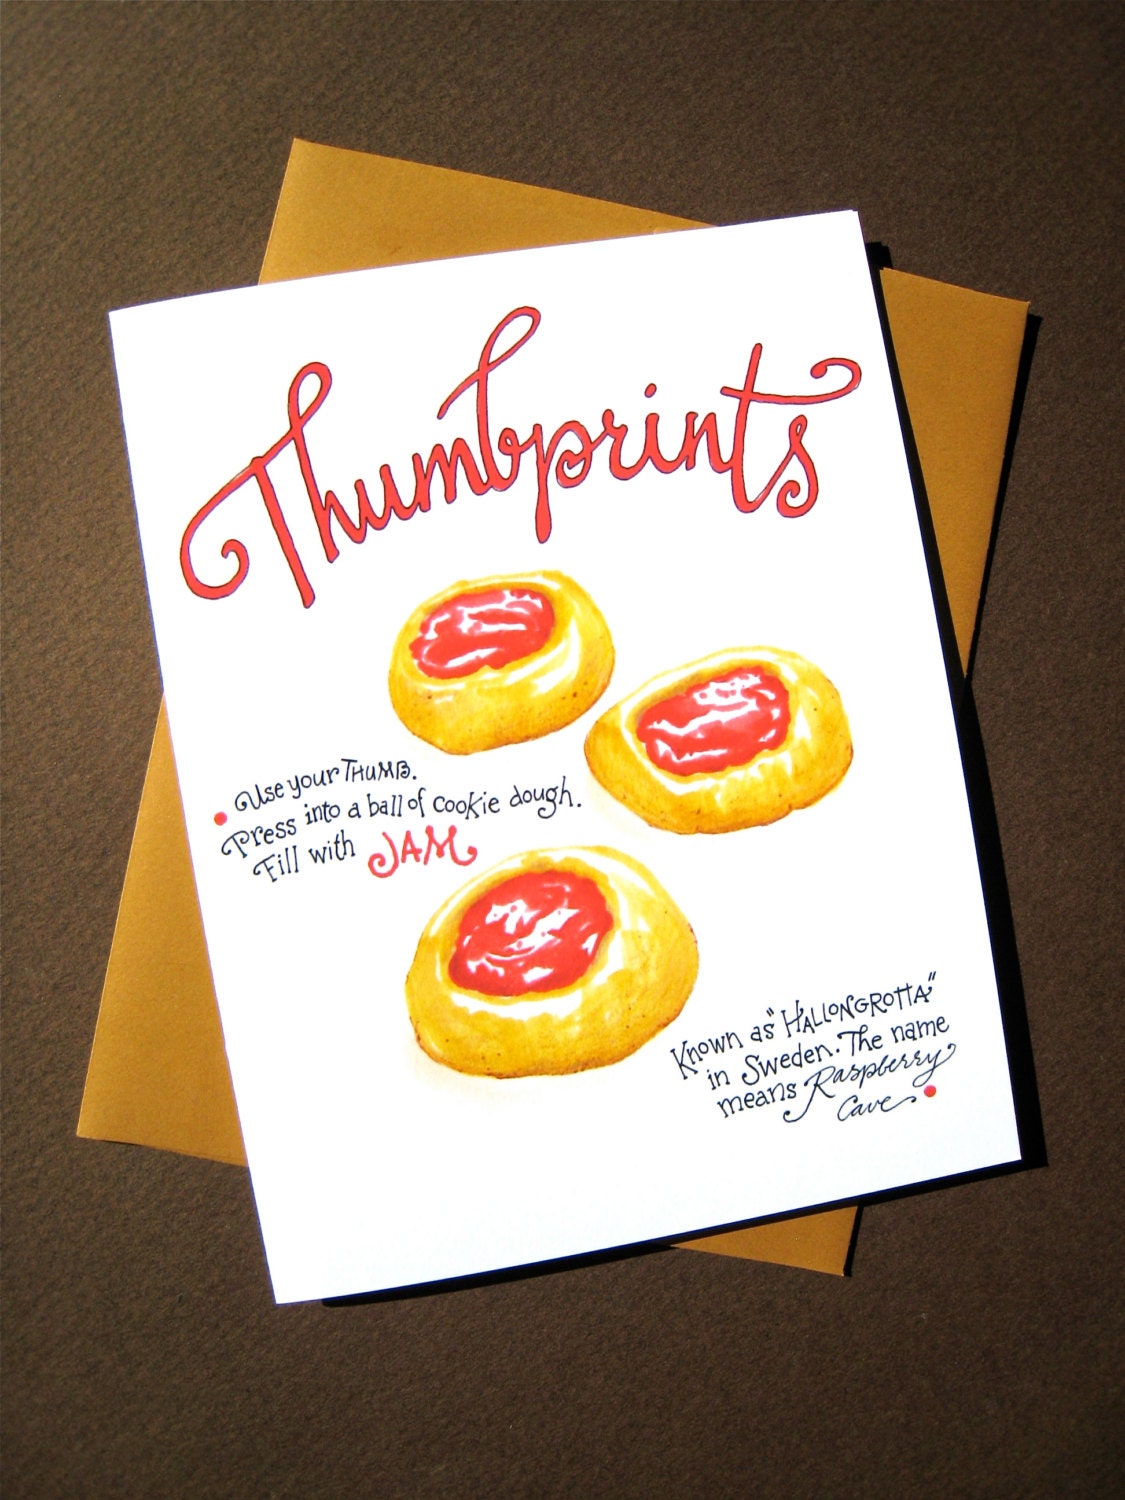 Thumbprints
Use your THUMB.
Press into a ball of cookie dough.
Fill with JAM
Known as "HALLONGROTTA"
in Sweden. The name
means Raspberry
Cave